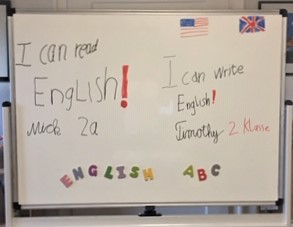 I can read
English!
Nick 2a
I can write
English!
Timothy 2 Klasse
ENGLISH ABC